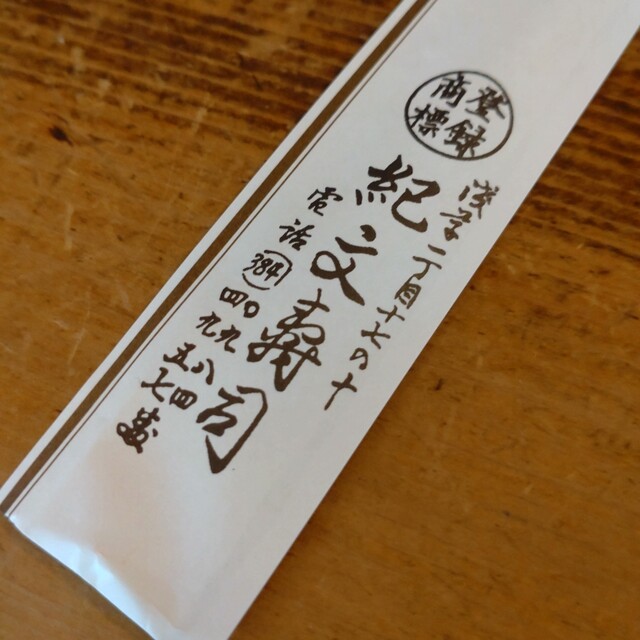 登録
商標
浅草一丁目十七の十
紀文寿司
電話
〇九八四
四九五七
番